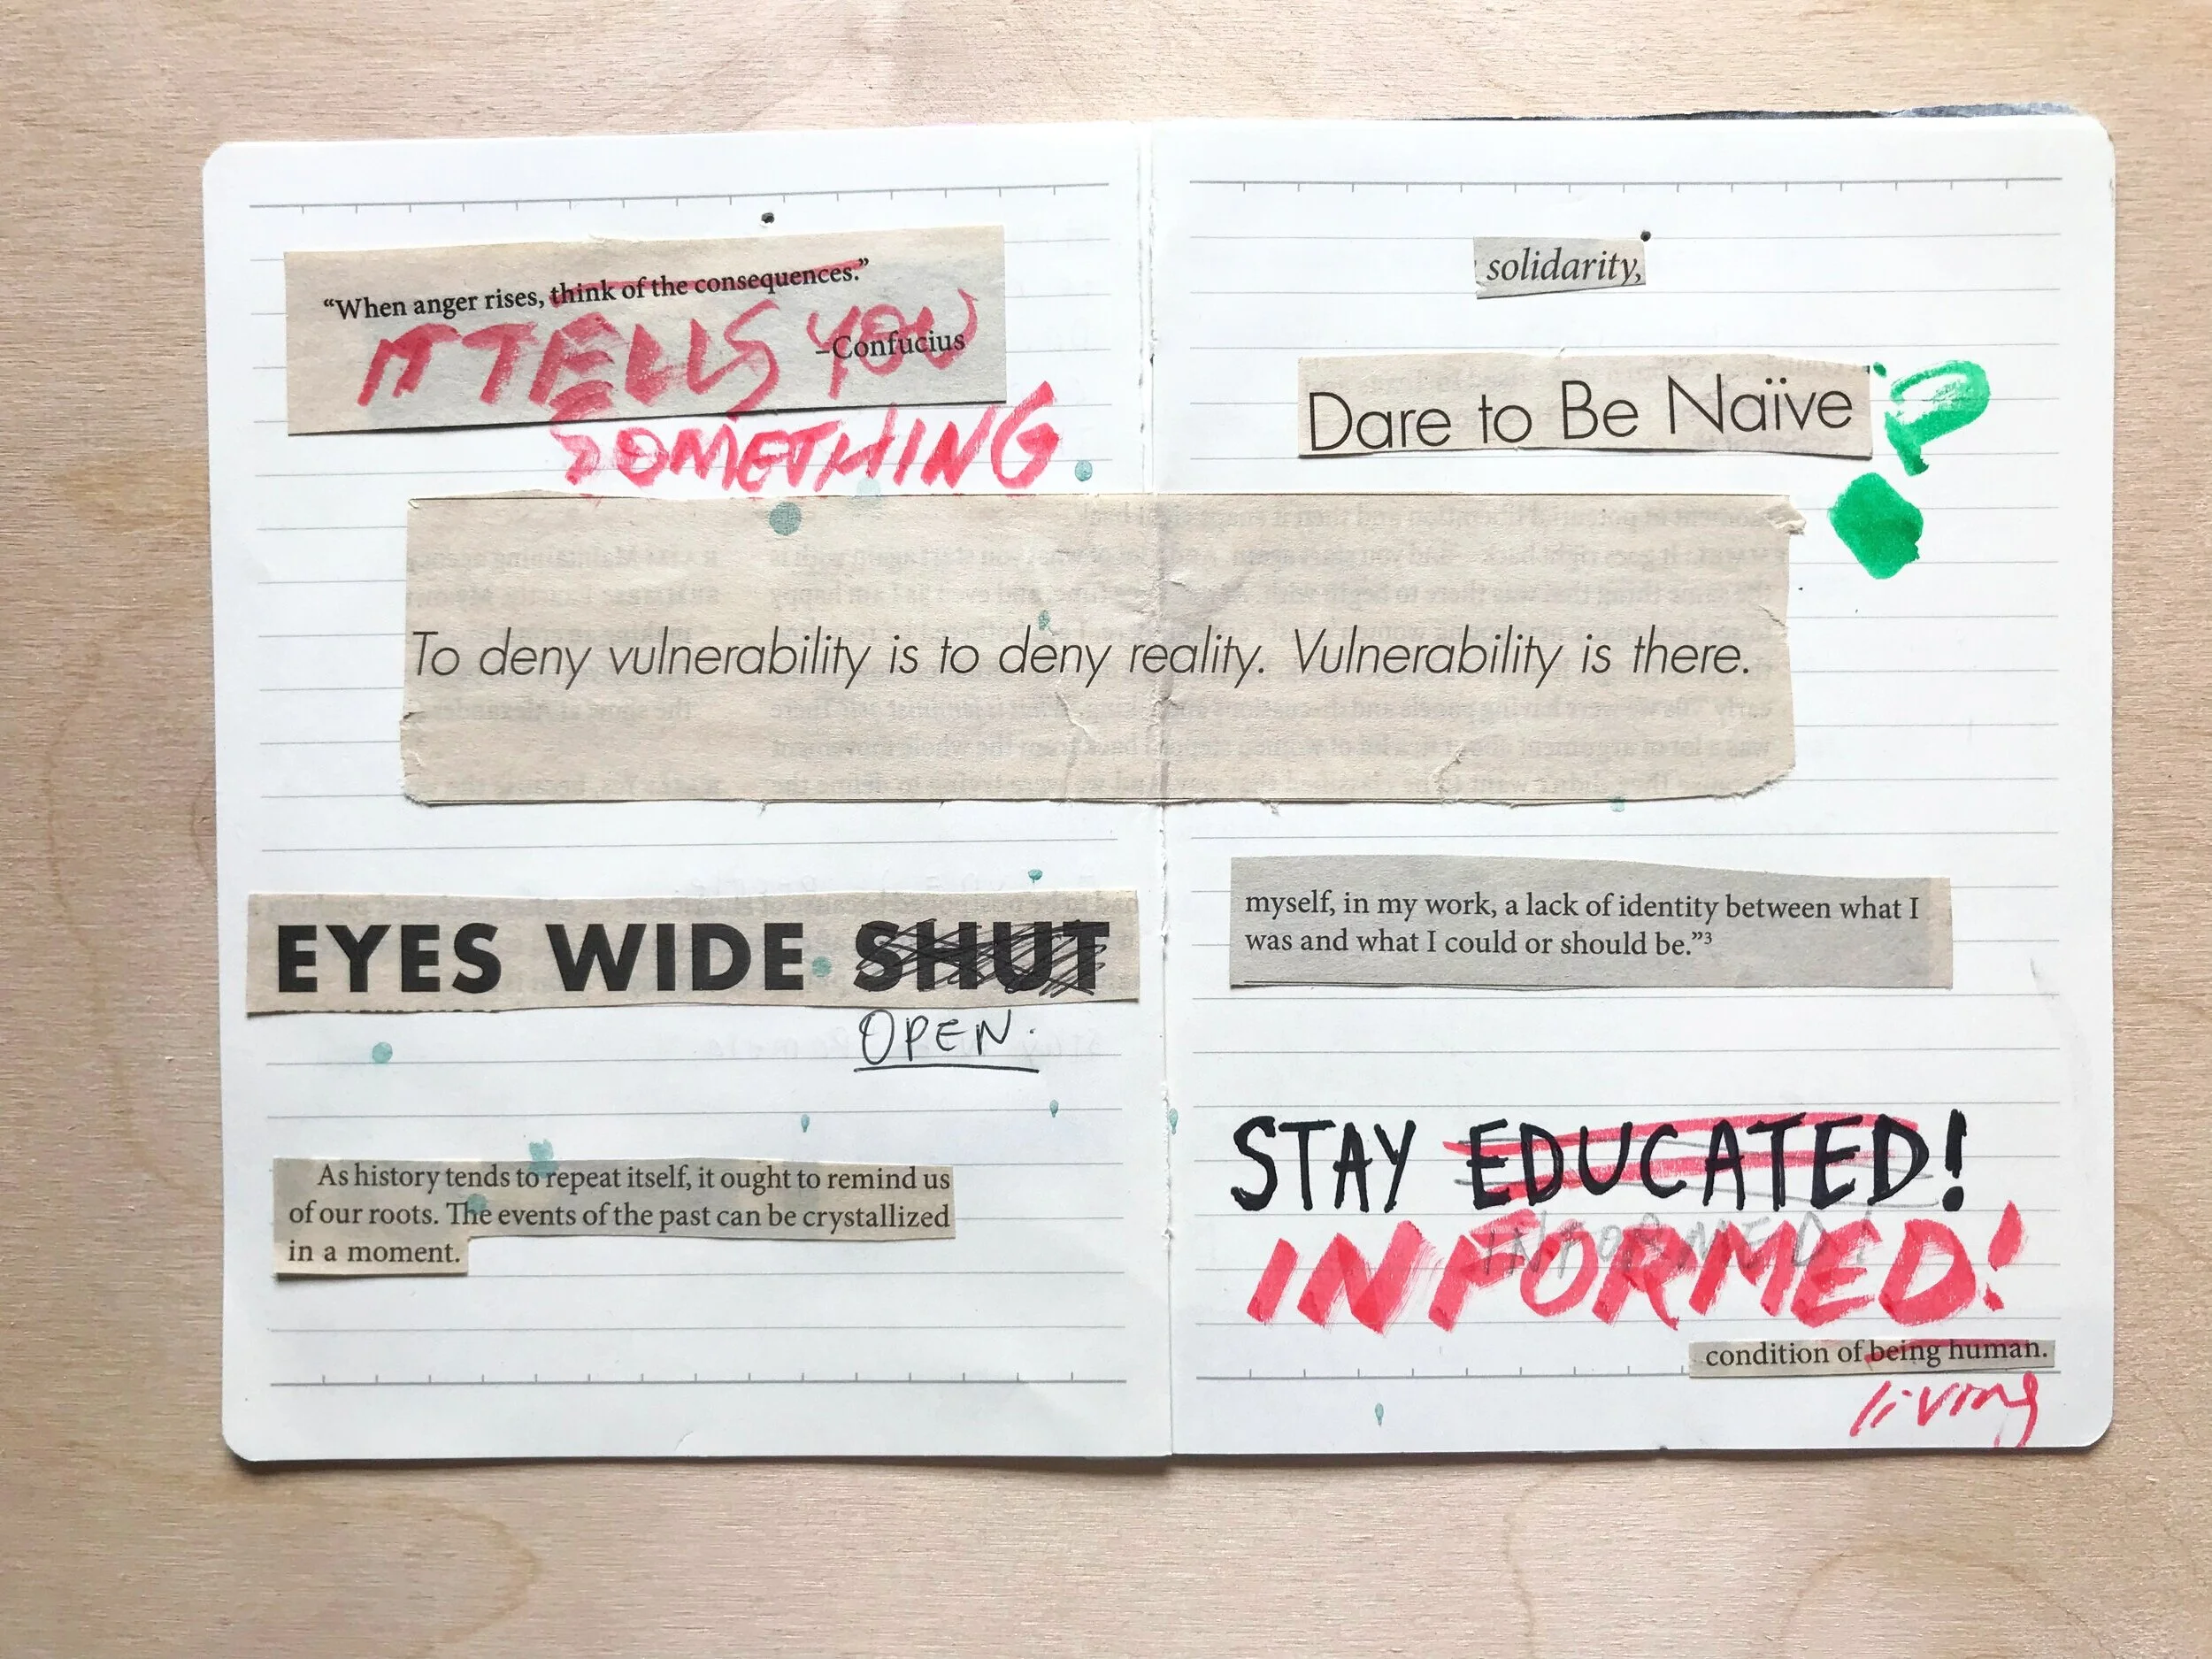 “When anger rises, think of the consequences.”
–Confucius
IT TELLS YOU
SOMETHING
solidarity,
Dare to Be Naïve
?
To deny vulnerability is to deny reality. Vulnerability is there.
EYES WIDE SHUT
OPEN.
As history tends to repeat itself, it ought to remind us
of our roots. The events of the past can be crystallized
in a moment.
myself, in my work, a lack of identity between what I
was and what I could or should be.”³
STAY EDUCATED!
INFORMED!
INFORMED!
condition of being human.
living